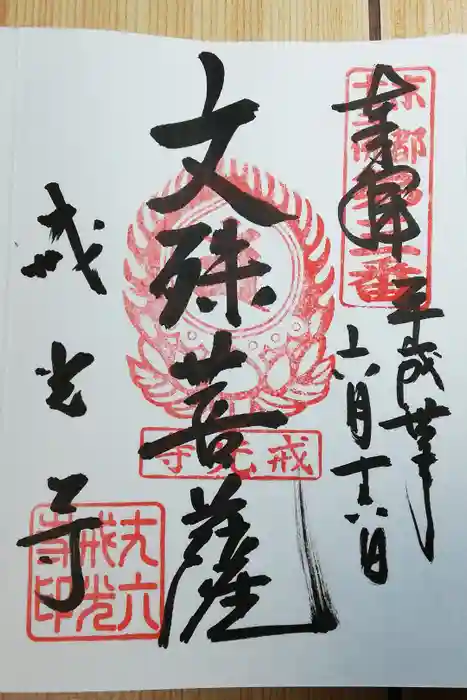 奉拝
平成卅年
六月十六日
京都
第三番
文殊菩薩
戒光寺
戒光寺
丈六
戒光
寺印